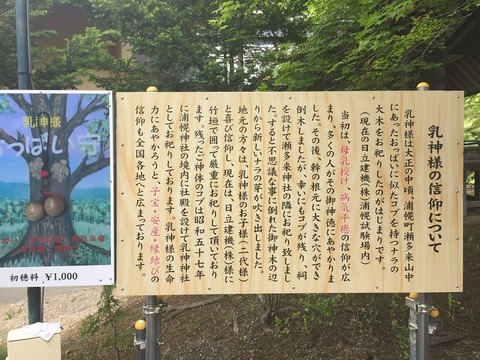 乳神様の信仰について
乳神様は大正の中頃、浦幌町瀬多来山中
にあったおっぱいに似たコブを持つナラの
大木をお祀りしたのがはじまりです。
(現在の日立建機(株)浦幌試験場内)
当初は、母乳授け、病気平癒の信仰が広
まり、多くの人がその御神徳にあやかりま
した。その後、幹の根元に大きな穴ができ
倒木しましたが、幸いにもコブが残り、祠
を設けて瀬多来神社の隣にお祀り致しまし
た。すると不思議な事に倒れた御神木の辺
りから新しいナラの芽が吹き出しました。
地元の方々は、乳神様のお子様(二代様)
と喜び信仰し、現在は、日立建機(株)様に
竹垣で囲って厳重にお祀りして頂いており
ます。残ったご神体のコブは昭和五十七年
に浦幌神社の境内に社殿を設けて乳神神社
としてお祀りしております。乳神様の生命
力にあやかろうと、子宝・安産・縁結びの
信仰も全国各地へと広まっております。
乳神様
っぱい守
初穂料 ¥1,000